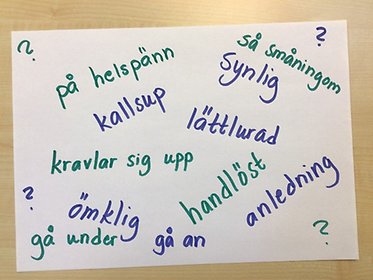 ?
?
på helspänn
så småningom
synlig
kallsup
lättlurad
kravlar sig upp
handlöst
anledning
?
ömklig
gå under
gå an
?